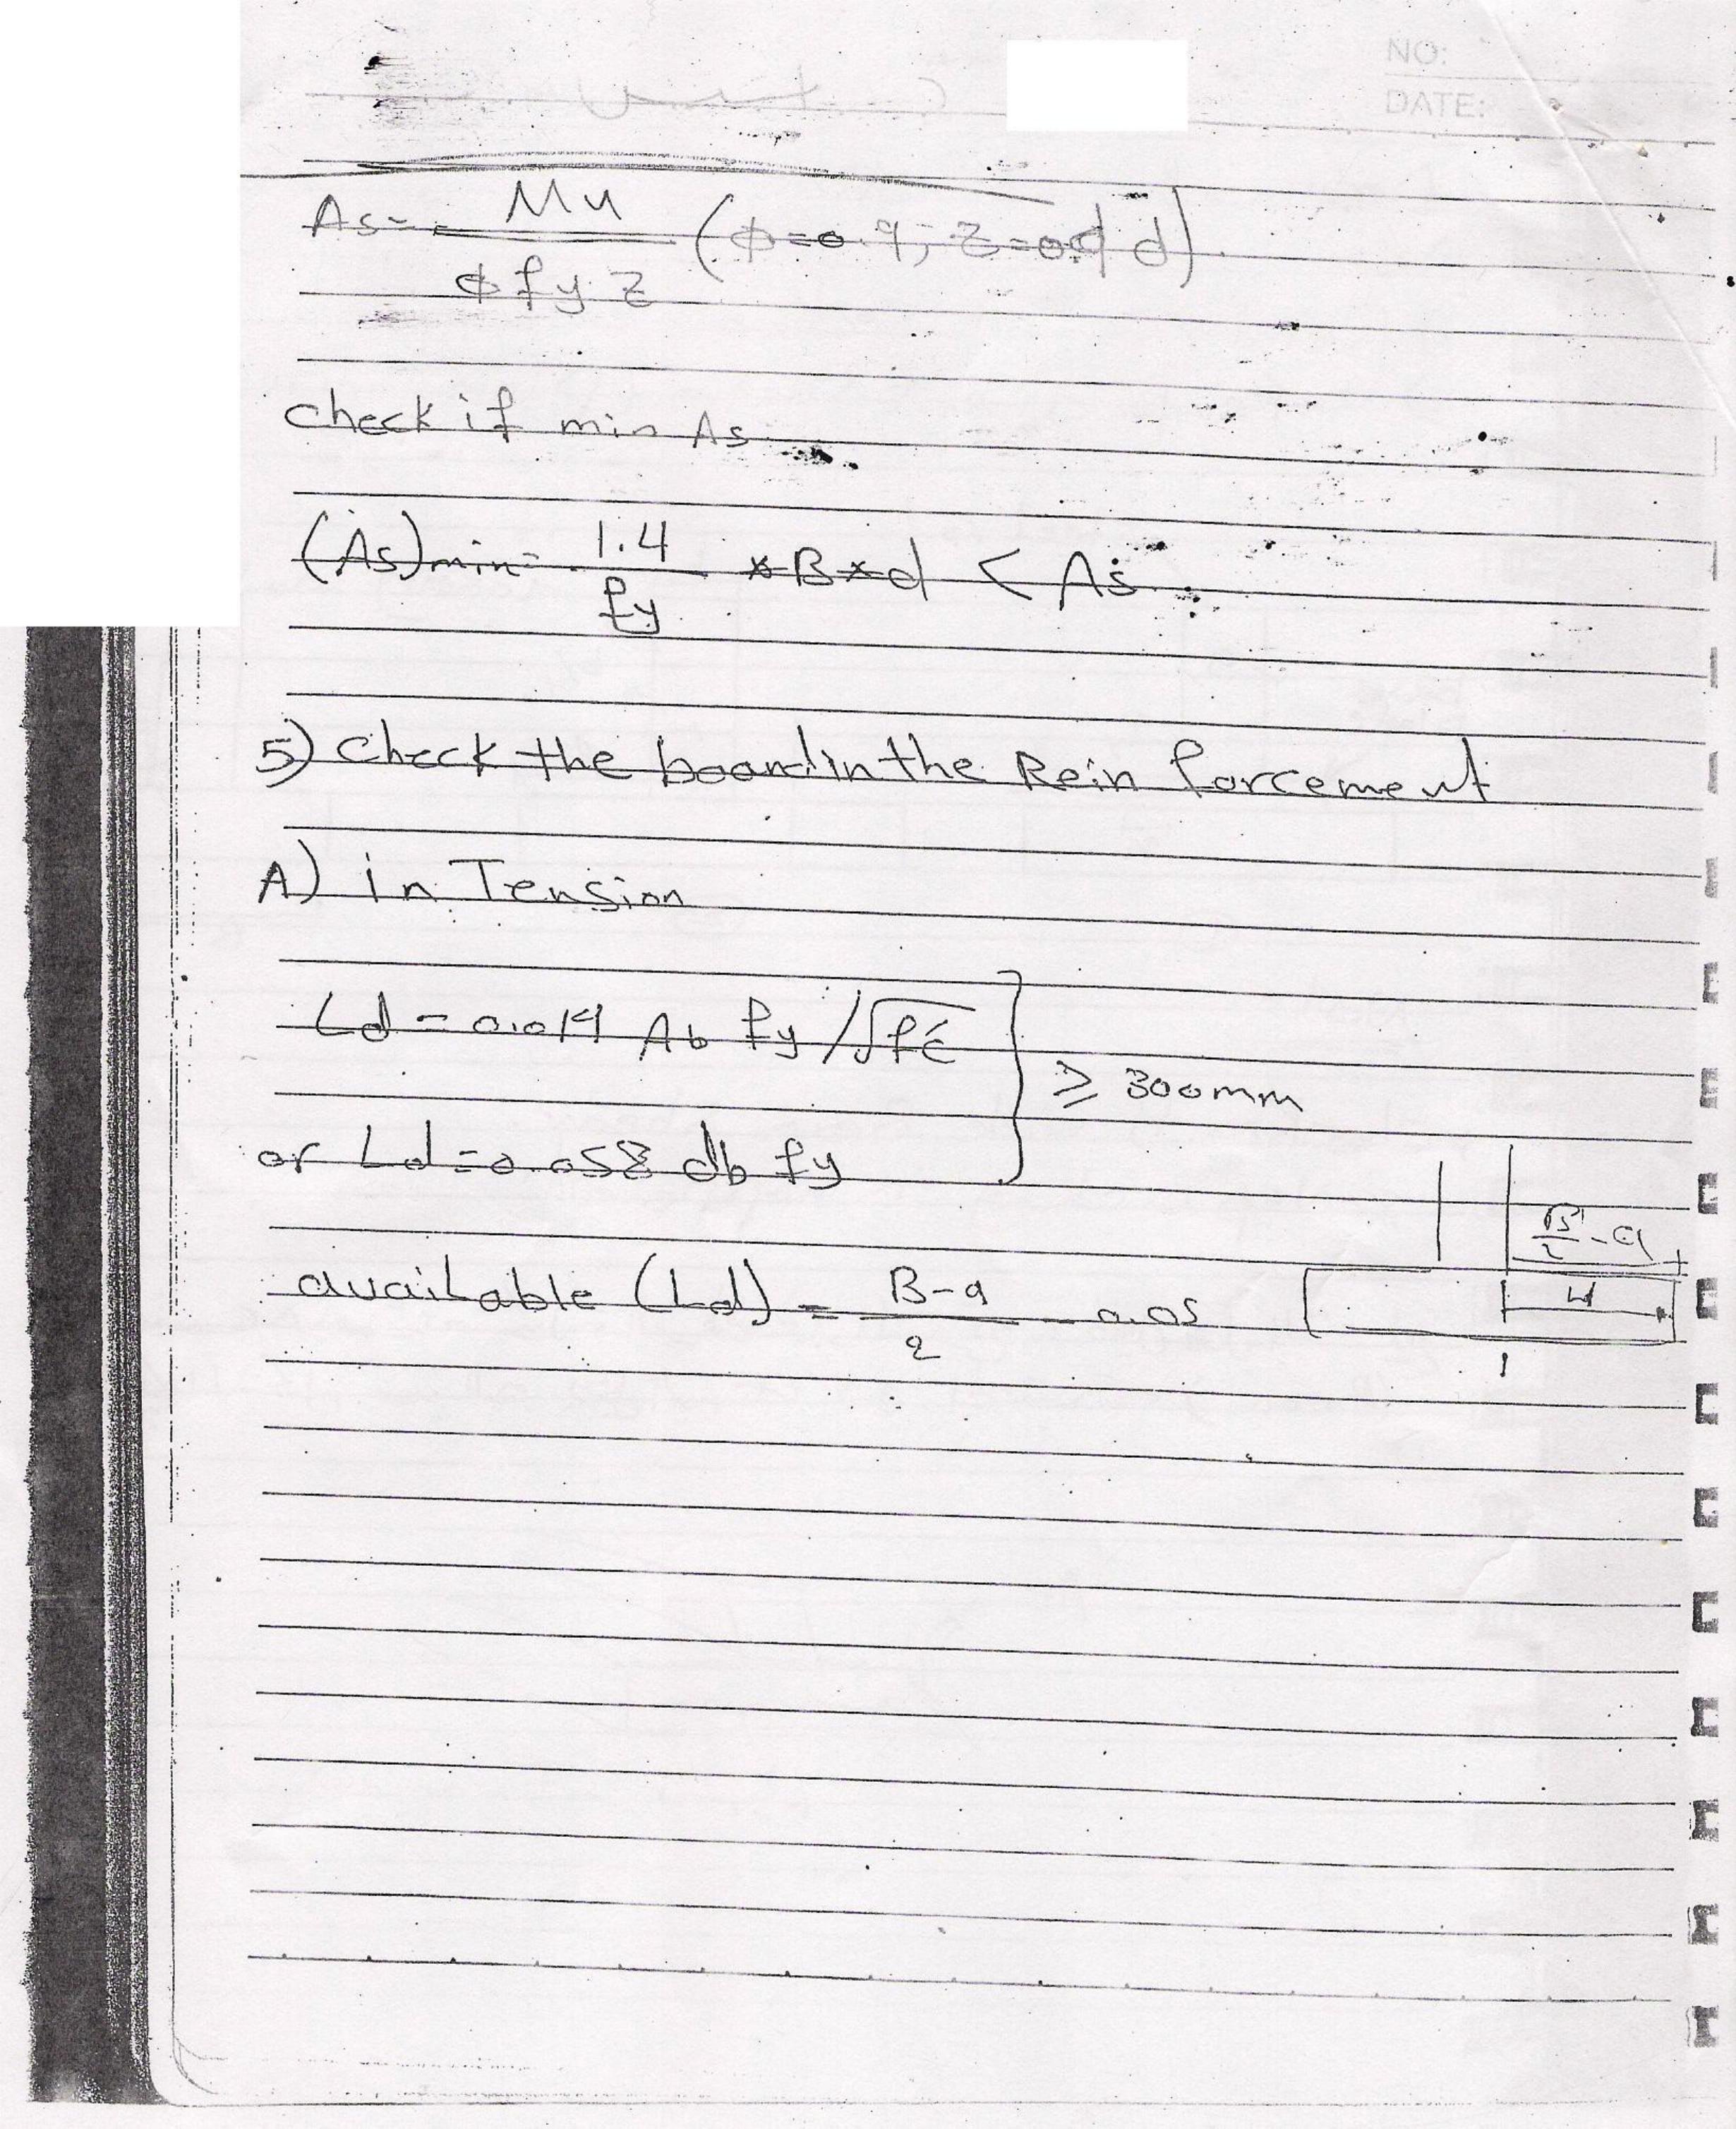 NO:
DATE:
As = Mu / φ fy z (φ=0.9, z=0.9 d)
check if min As
(As)min = 1.4 / fy * B * d < As
5) check the board in the Rein forcement
A) in Tension
Ld = 0.019 Ab fy / √fc'
≥ 300mm
or Ld = 0.058 db fy
B/2 - a
available (Ld) = B-a / 2 - 0.05
Ld